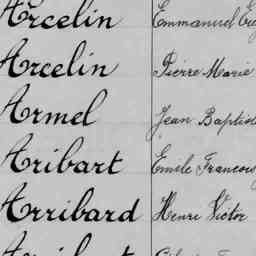 Arcelin Emmanuel
Arcelin Pierre Marie
Armel Jean Baptiste
Aribart Emile Francois
Arribard Henri Victor